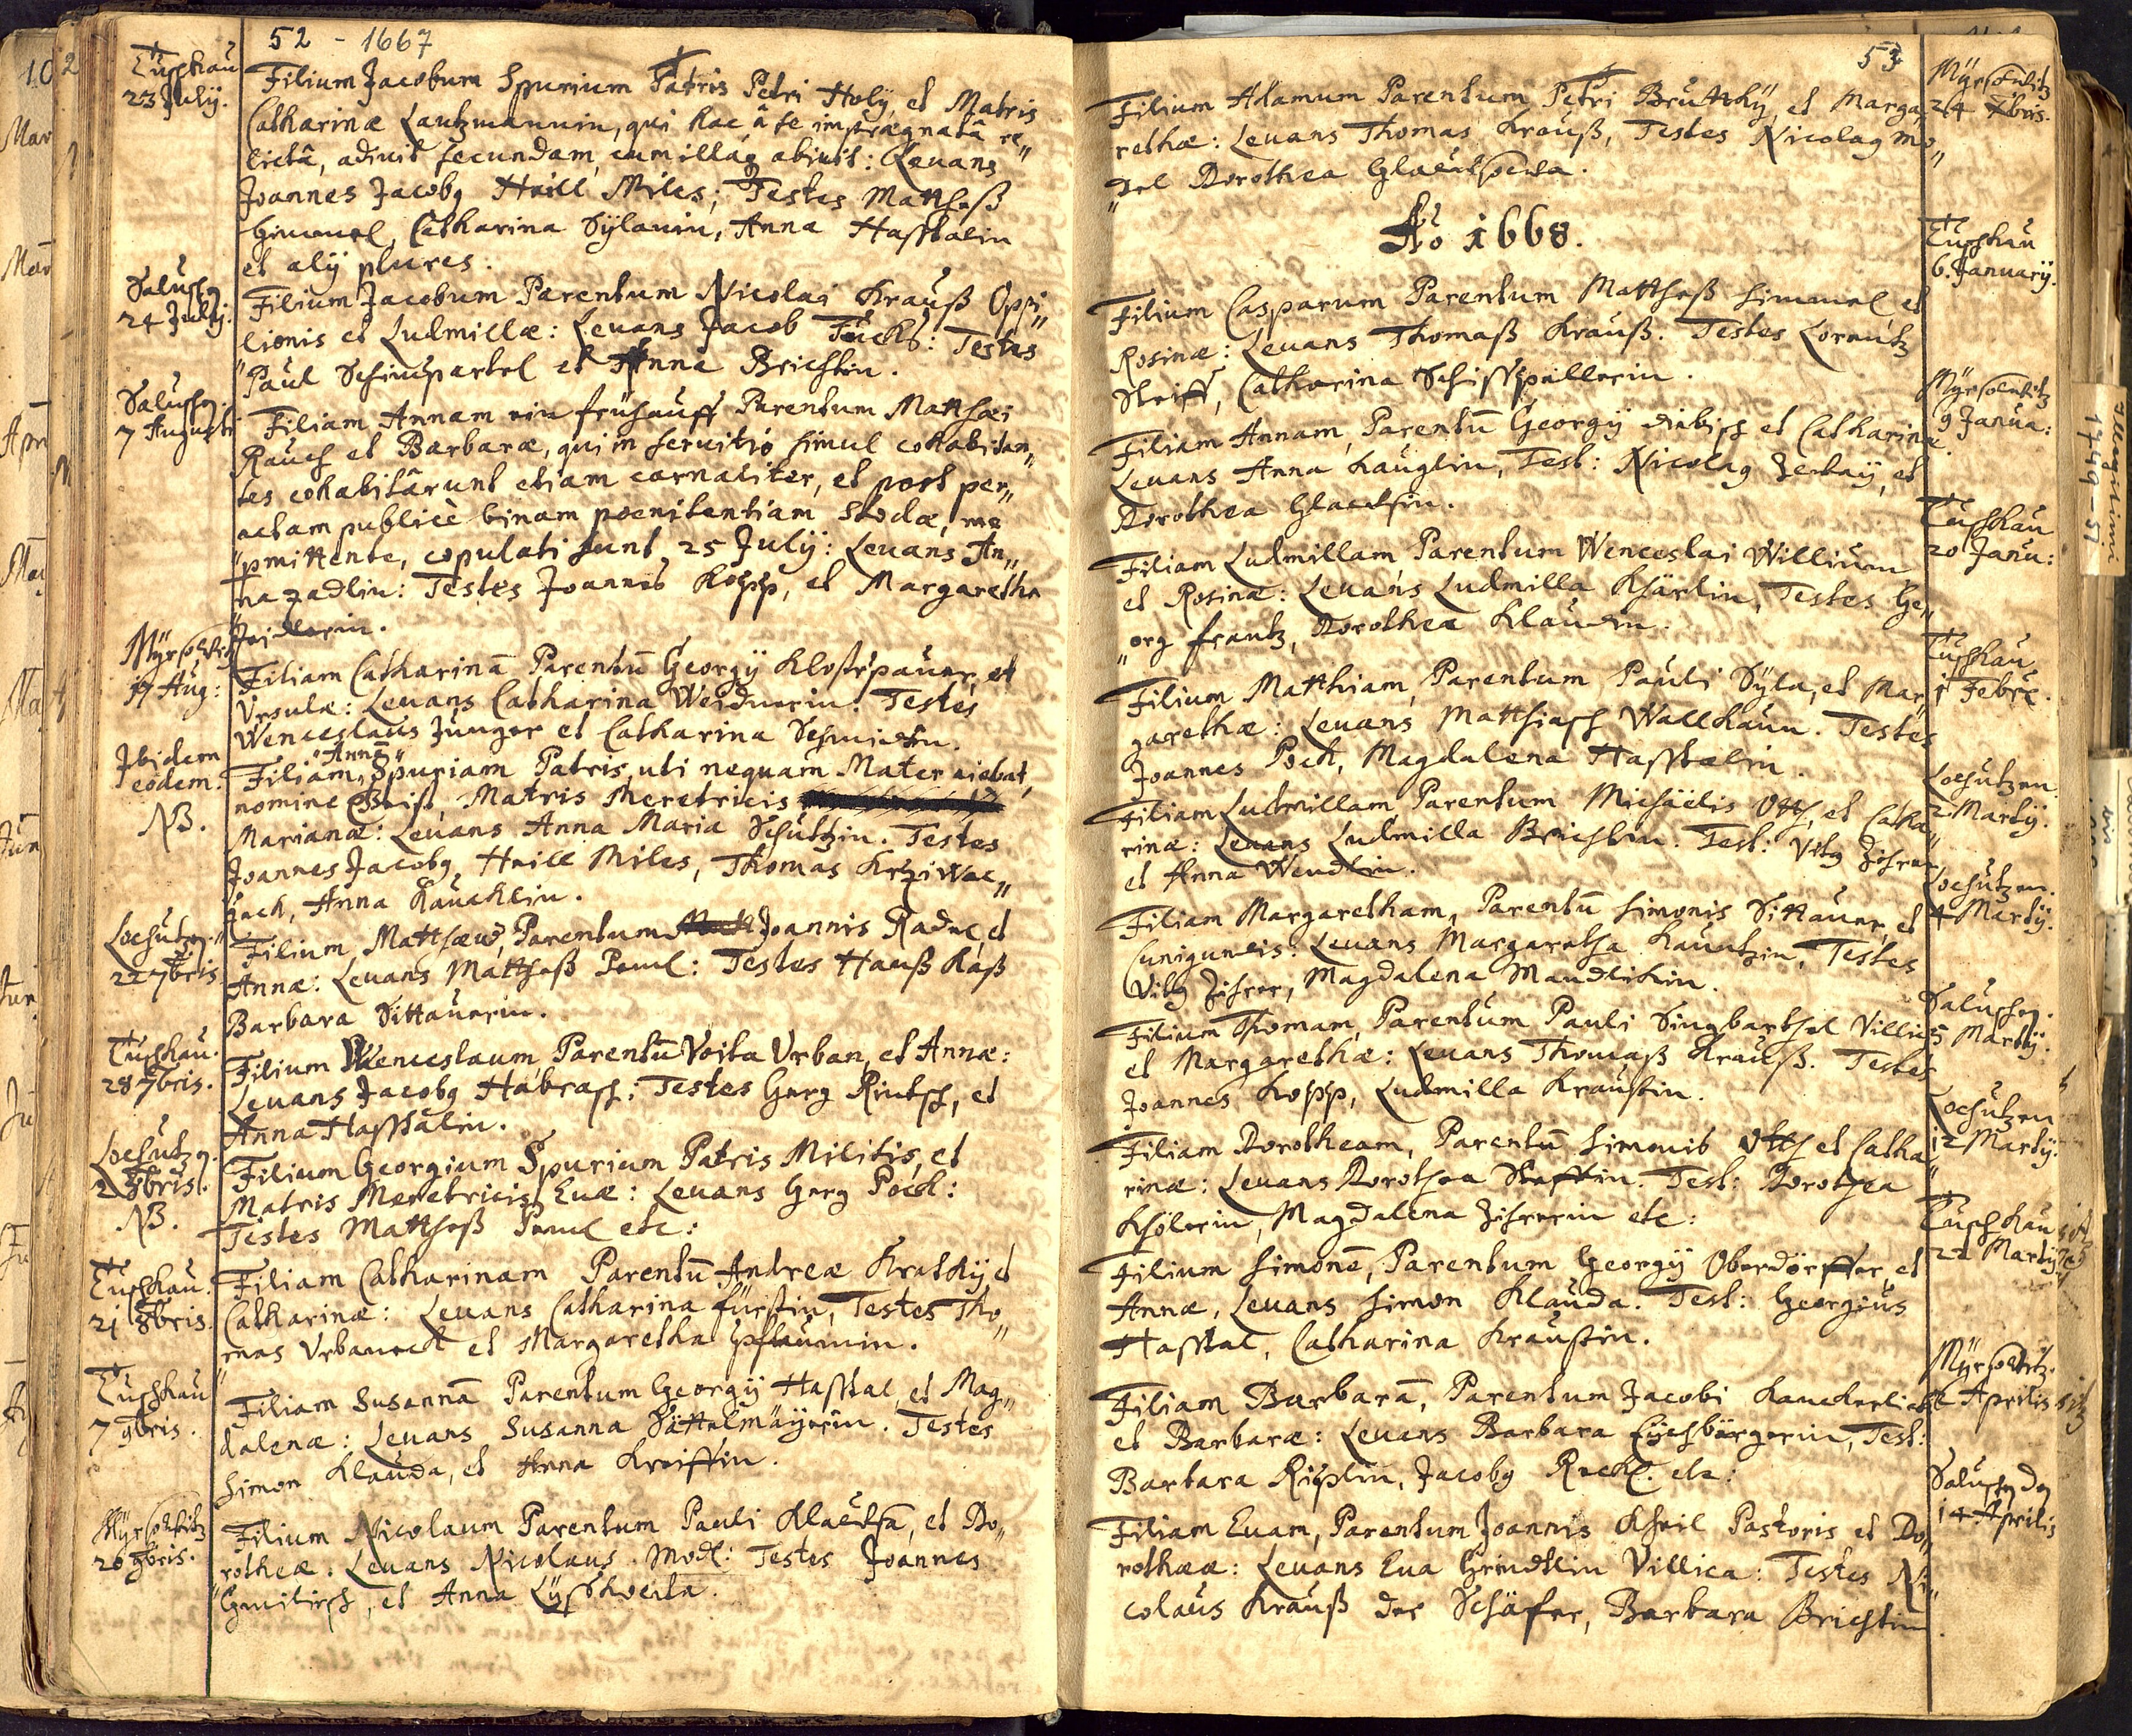 52 - 1667
Tuschkau
23 July.
Filium Jacobum Spurium Patris Petri Holy, et Matris
Catharinæ Lautzmannin, qui hac â se imprægnatâ re„
lictâ, adivit secundam, cum illaq abivit: Levans
Joannes Jacobg Haill Miles; Testes Mattheß
Himmel, Catharina Sÿlanin, Anna Hasstalin
et alÿ plures.
Saluschg.
24 July.
Filium Jacobum Parentum Nicolai Krauß Opi„
lionis et Ludmillæ: Levans Jacob Fuchß: Testes
Paul Schintzpartel et Anna Brichtin.
Saluschg.
7 Augusti
Filiam Annam ein frühauff Parentum Matthæi
Rauch et Barbaræ, qui in servitio simul cohabitan„
tes cohabitârunt etiam carnaliter, et post per„
actam publicè binam poenitentiam Stodæ, me
pmittente, copulati sunt 25 July: Levans An„
na Zadlin: Testes Joannes Kopp, et Margaretha
Zeidlerin.
17 Aug:
Filiam Catharinā Parentū Georgÿ Klosterpauer, et
Ursulæ: Levans Catharina Weidnerin. Testes
Wenceslaus Junger et Catharina Schmiedin.
Ibidem
eodem.
NB.
Annā
Filiam, Spuriam Patris, uti nequam Mater aiebat,
nomine Matris Meretricis
Marianæ: Levans Anna Maria Schützin. Testes
Joannes Jacobg Haill Miles, Thomas Krziwac„
zack, Anna Kaucklin.
Lochutzg.
22 7bris
Filium Matthæum, Parentum Joannis Radac, et
Annæ: Levans Mattheß Peml: Testes Hanß Kaß
Barbara Sittauerin.
Tuschkau.
28 7bris.
Filium Wenceslaum, Parentū Voita Urban, et Annæ:
Levans Jacobg Habrasch: Testes Gerg Rintsch, et
Anna Hasstalin.
Lochutzg.
2 8bris.
NB.
Filium Georgium Spurium Patris Militis, et
Matris Meretricis Evæ: Levans Gerg Pock:
Testes Mattheß Peml etc:
Tuschkau.
21 8bris.
Filiam Catharinam Parentū Andreæ Kratkÿ et
Catharinæ: Levans Catharina Fürstin, Testes Tho„
mas Urbaneck et Margaretha Pflaumin.
Tuschkau
7 9bris.
Filiam Susannā Parentum Georgÿ Hasstal, et Mag„
dalenæ: Levans Susanna Sättelmäyerin. Testes
Simon Klauda, et Anna Kreissin.
20 9bris.
Filium Nicolaum Parentum Pauli Klaudsa, et Do„
rotheæ. Levans Nicolaus Modl: Testes Joannes
et Anna
53
24 Xbris.
Filium Adamum Parentum Petri Bruttkÿ, et Marga„
rethæ: Levans Thomas Krauß, Testes Nicolag Mo„
del Dorothea
Aō 1668.
Tuschkau
6. January.
Filium Casparum Parentum Mattheß Himmel, et
Rosinæ: Levans Thomaß Krauß. Testes Lorentz
Steiff, Catharina Schißpallerin.
9 Janua:
Filiam Annam, Parentū Georgÿ et Catharinæ
Levans Anna Kauglin, Test: Nicolag Zerbaÿ, et
Dorothea Glaedsin.
Tuschkau
20 Janu:
Filiam Ludmillam Parentum Wenceslai Willium
et Rosinæ: Levans Ludmilla Khärlin, Testes Ge„
org Frantz, Dorothea Klaudin.
Tuschkau
1 Febru.
Filium Matthiam, Parentum Pauli Sÿla, et Mar„
garethæ: Levans Matthiasch Wallkaun. Testes
Joannes Pock, Magdalena Hasstalin.
Lochutzen
2 Marty.
Filiam Ludmillam Parentum Michäelis Ott, et Catha„
rinæ: Levans Ludmilla Brichtin. Test: Vitg Zihrer,
et Anna Wendlin.
Lochutzen.
4 Marty.
Filiam Margaretham, Parentū Simonis Sittauer, et
Cunigundis: Levans Margaretha Kauntzin, Testes
Vitg Zihrer, Magdalena Mandlikin.
Saluschg.
5 Marty.
Filium Thomam, Parentum Pauli Singbarthel Villici
et Margarethæ: Levans Thomaß Krauß. Testes
Joannes Kopp, Ludmilla Kraustin.
Lochutzen
12 Marty.
Filiam Dorotheam, Parentū Simonis Ott et Catha„
rinæ: Levans Dorothea Steffin. Test: Dorothea
Khölerin, Magdalena Zihrerin etc:
Tuschkau
22 Marty
Filium Simonē, Parentum Georgÿ Oberdörffer, et
Annæ, Levans Simon Klauda. Test: Georgius
Hasstal, Catharina Kraustin.
Aprilis
Filiam Barbarā, Parentum Jacobi
et Barbaræ: Levans Barbara Eÿchbürgerin, Test:
Barbara Rüplin, Jacobg Röckl. etc:
14 Aprilis
Filiam Evam, Parentum Joannis Kheil Pastoris et Do„
rotheæ: Levans Eva Grindtlin Villica: Testes Ni„
colaus Krauß der Schäfer, Barbara Brichtin.
1749-57